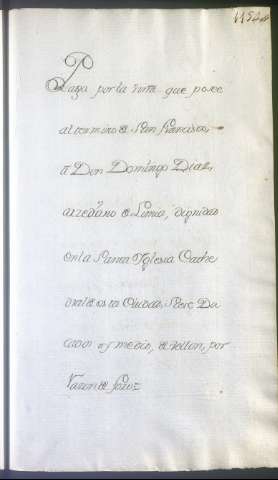 Paga por la renta que posee
al termino de San Francisco,
a Don Domingo Diaz,
arzediano de Limia, dignidad
en la Santa Iglesia Cathe
dral de esta Ciudad, Seis Du
cados y medio, de vellon, por
razon de foro=